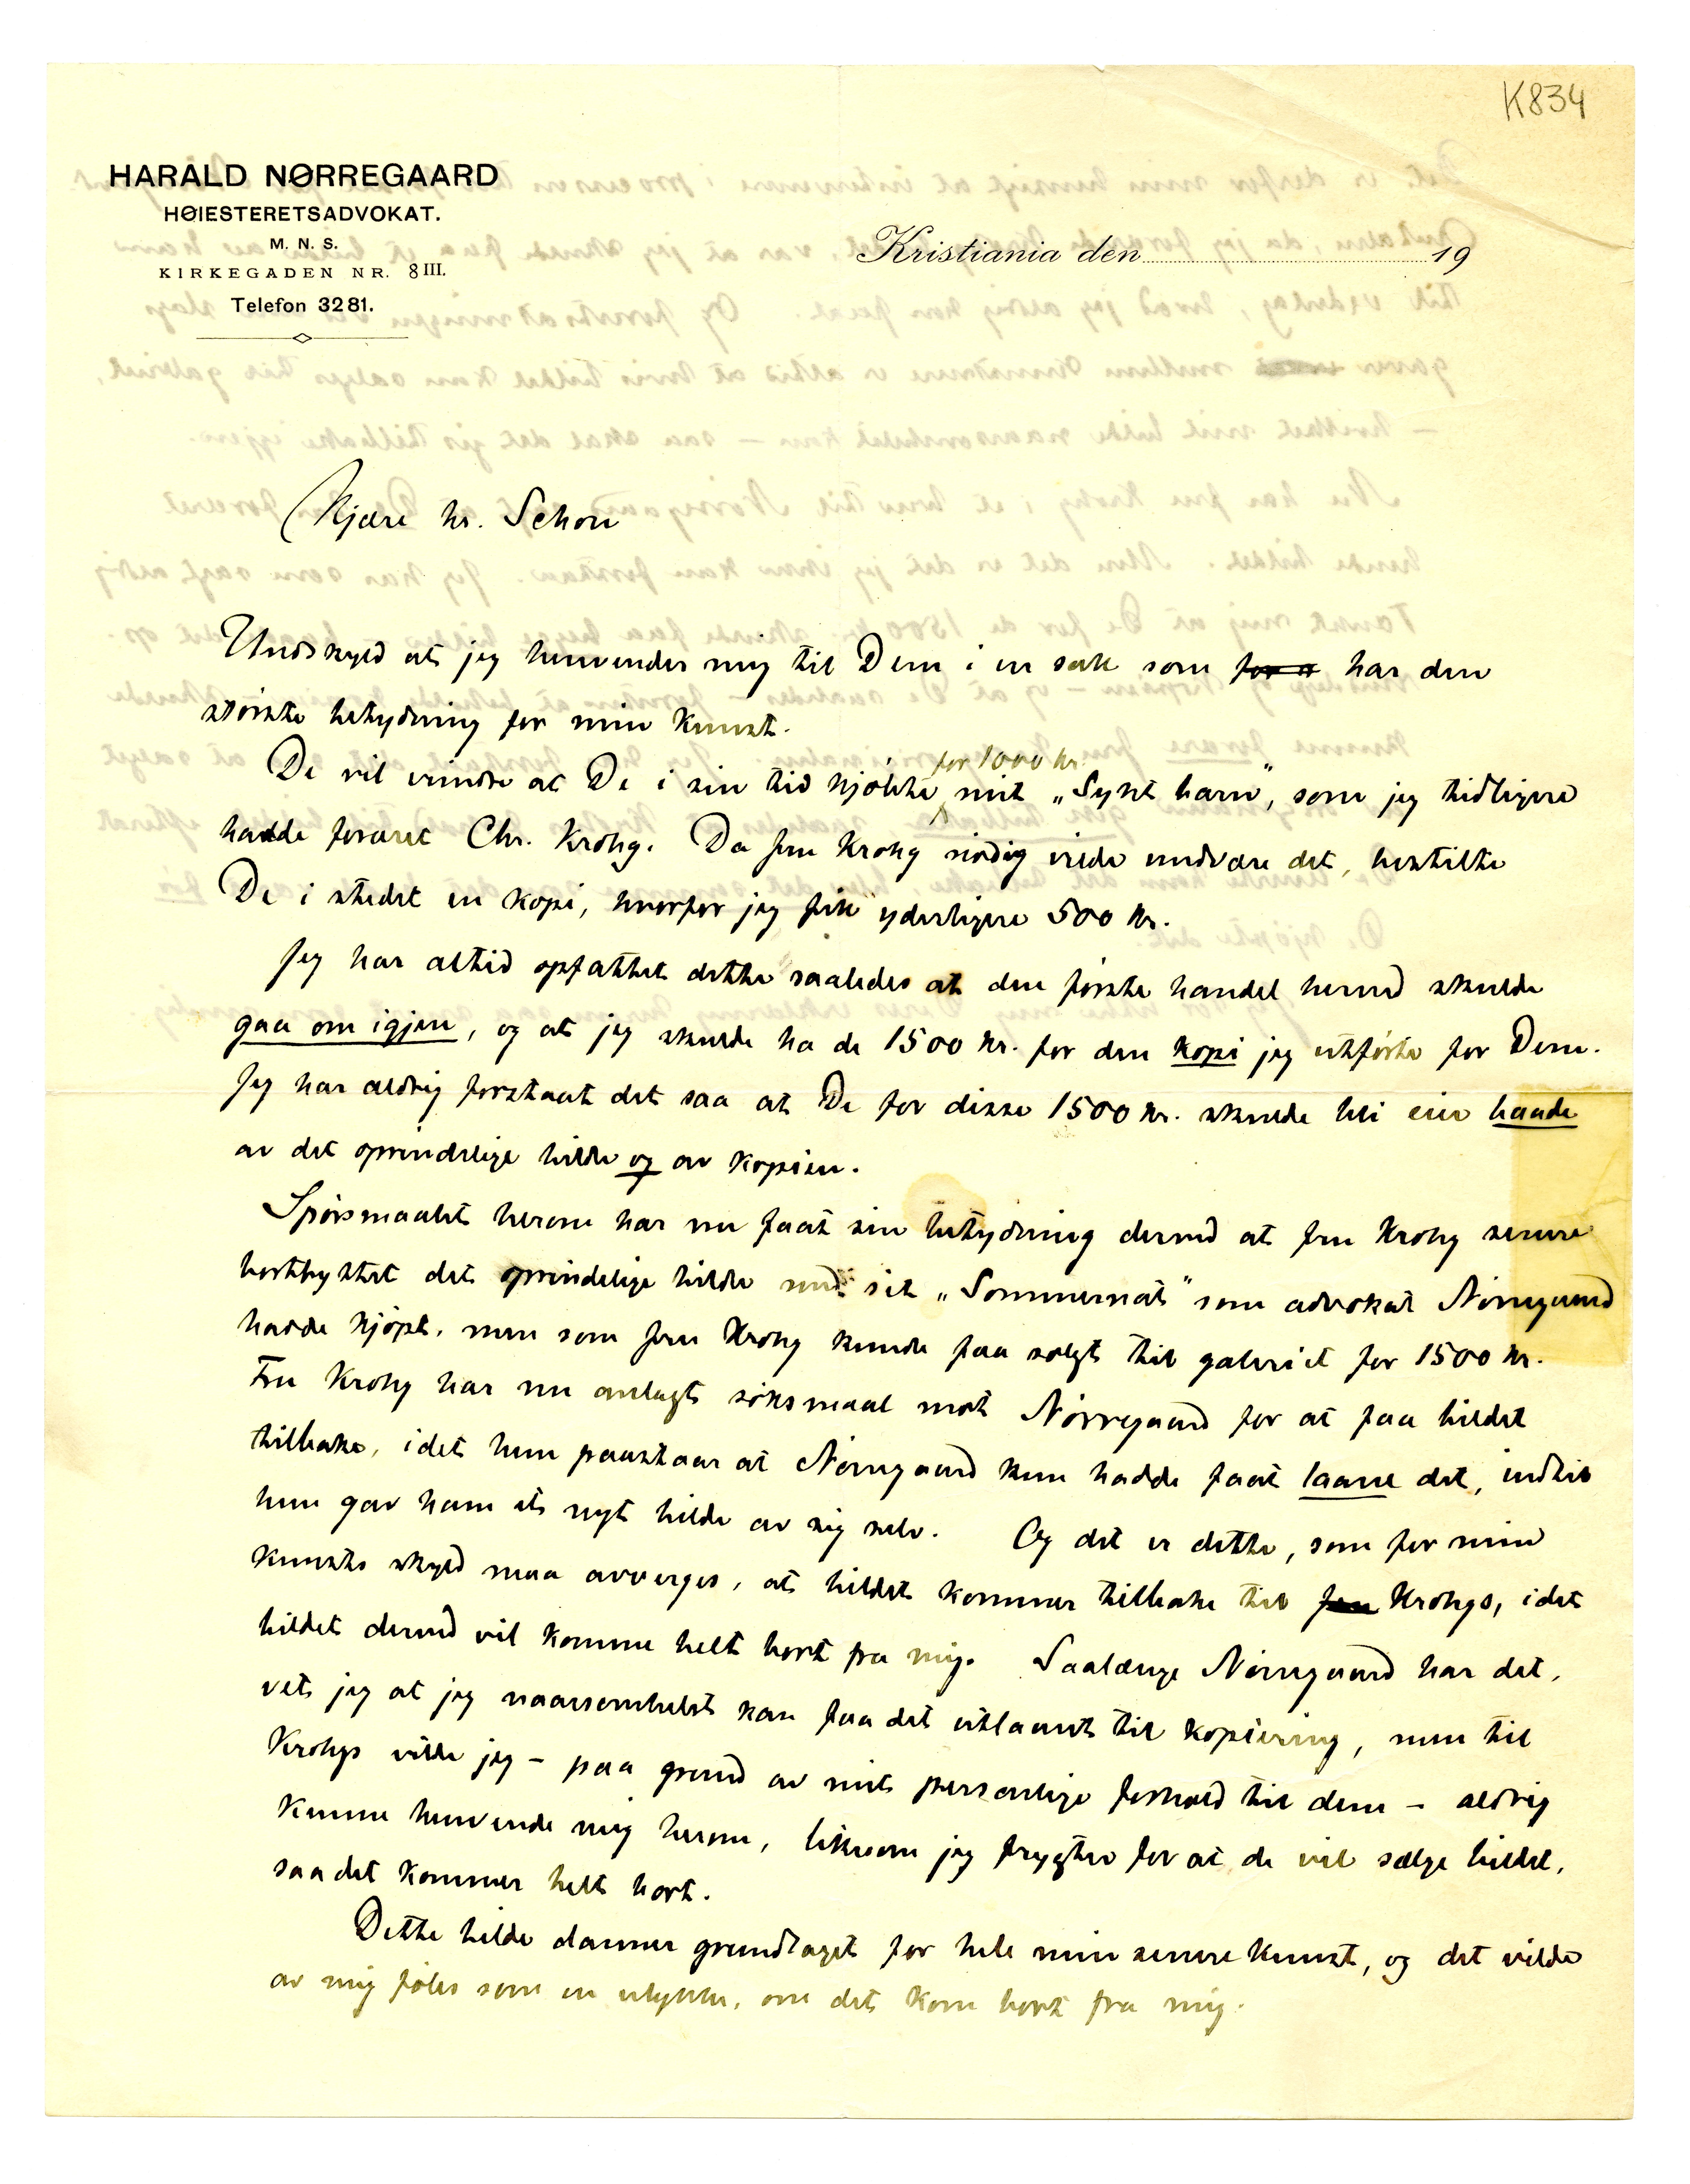 K834
HARALD NØRREGAARD
HØIESTERETSADVOKAT.
M. N. S.
KIRKEGADEN NR. 8 III.
Telefon 3281.
Kristiania den 19
Kjære hr. Schou
Undskyld at jeg henvender mig til Dem i en sak som for har den
største betydning for min kunst.
De vil erindre at De i sin tid kjøbte for 1000 kr. mit „Sykt barn", som jeg tidligere
hadde foræret Chr. Krohg. Da fru Krohg nødig vilde undvære det, bestilte
De i stedet en kopi, hvorfor jeg fik yderligere 500 kr.
Jeg har altid opfattet dette saaledes at den første handel herved skulde
gaa om igjen, og at jeg skulde ha de 1500 kr. for den kopi jeg utførte for Dem.
Jeg har aldrig forstaat det saa at De for disse 1500 kr. skulde bli eier baade
av det oprindelige billde og av kopien.
Spørsmaalet herom har nu faat sin betydning derved at fru Krohg senere
bortbyttet det oprindelige billde mod sit „Sommernat" som advokat Nørregaard
hadde kjøpt, men som fru Krohg kunde faa solgt til galeriet for 1500 kr.
Fru Krohg har nu anlagt søksmaal mot Nørregaard for at faa billdet
tilbake, idet hun paastaar at Nørregaard kun hadde faat laane det, indtil
hun gav ham et nyt billde av sig selv. Og det er dette, som for min
kunsts skyld maa avverges, at billdet kommer tilbake til fru Krohgs, idet
billdet derved vil komme helt bort fra mig. Saalænge Nørregaard har det,
vet jeg at jeg naarsomhelst kan faa det utlaant til kopiering, men til
Krohgs vilde jeg – paa grund av mit personlige forhold til dem – aldrig
kunne henvende mig herom, likesom jeg frygter for at de vil sælge billdet,
saa det kommer helt bort.
Dette billde danner grundlaget for hele min senere kunst, og det vilde
av mig føles som en ulykke, om det kom bort fra mig.